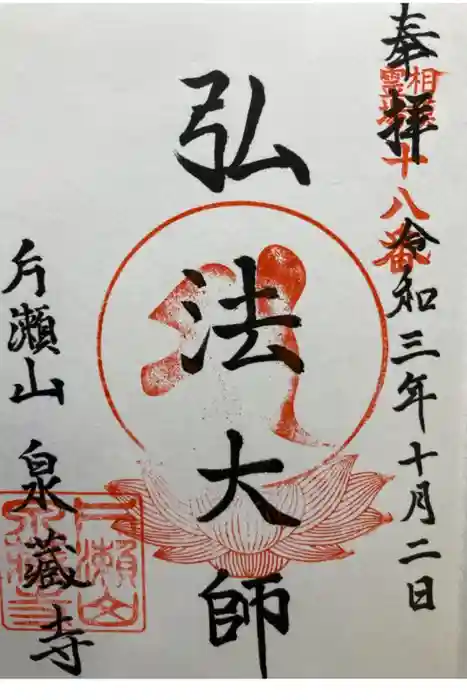 奉拝
相模
霊場
十八番
令和三年十月二日
弘法大師
片瀬山
泉蔵寺